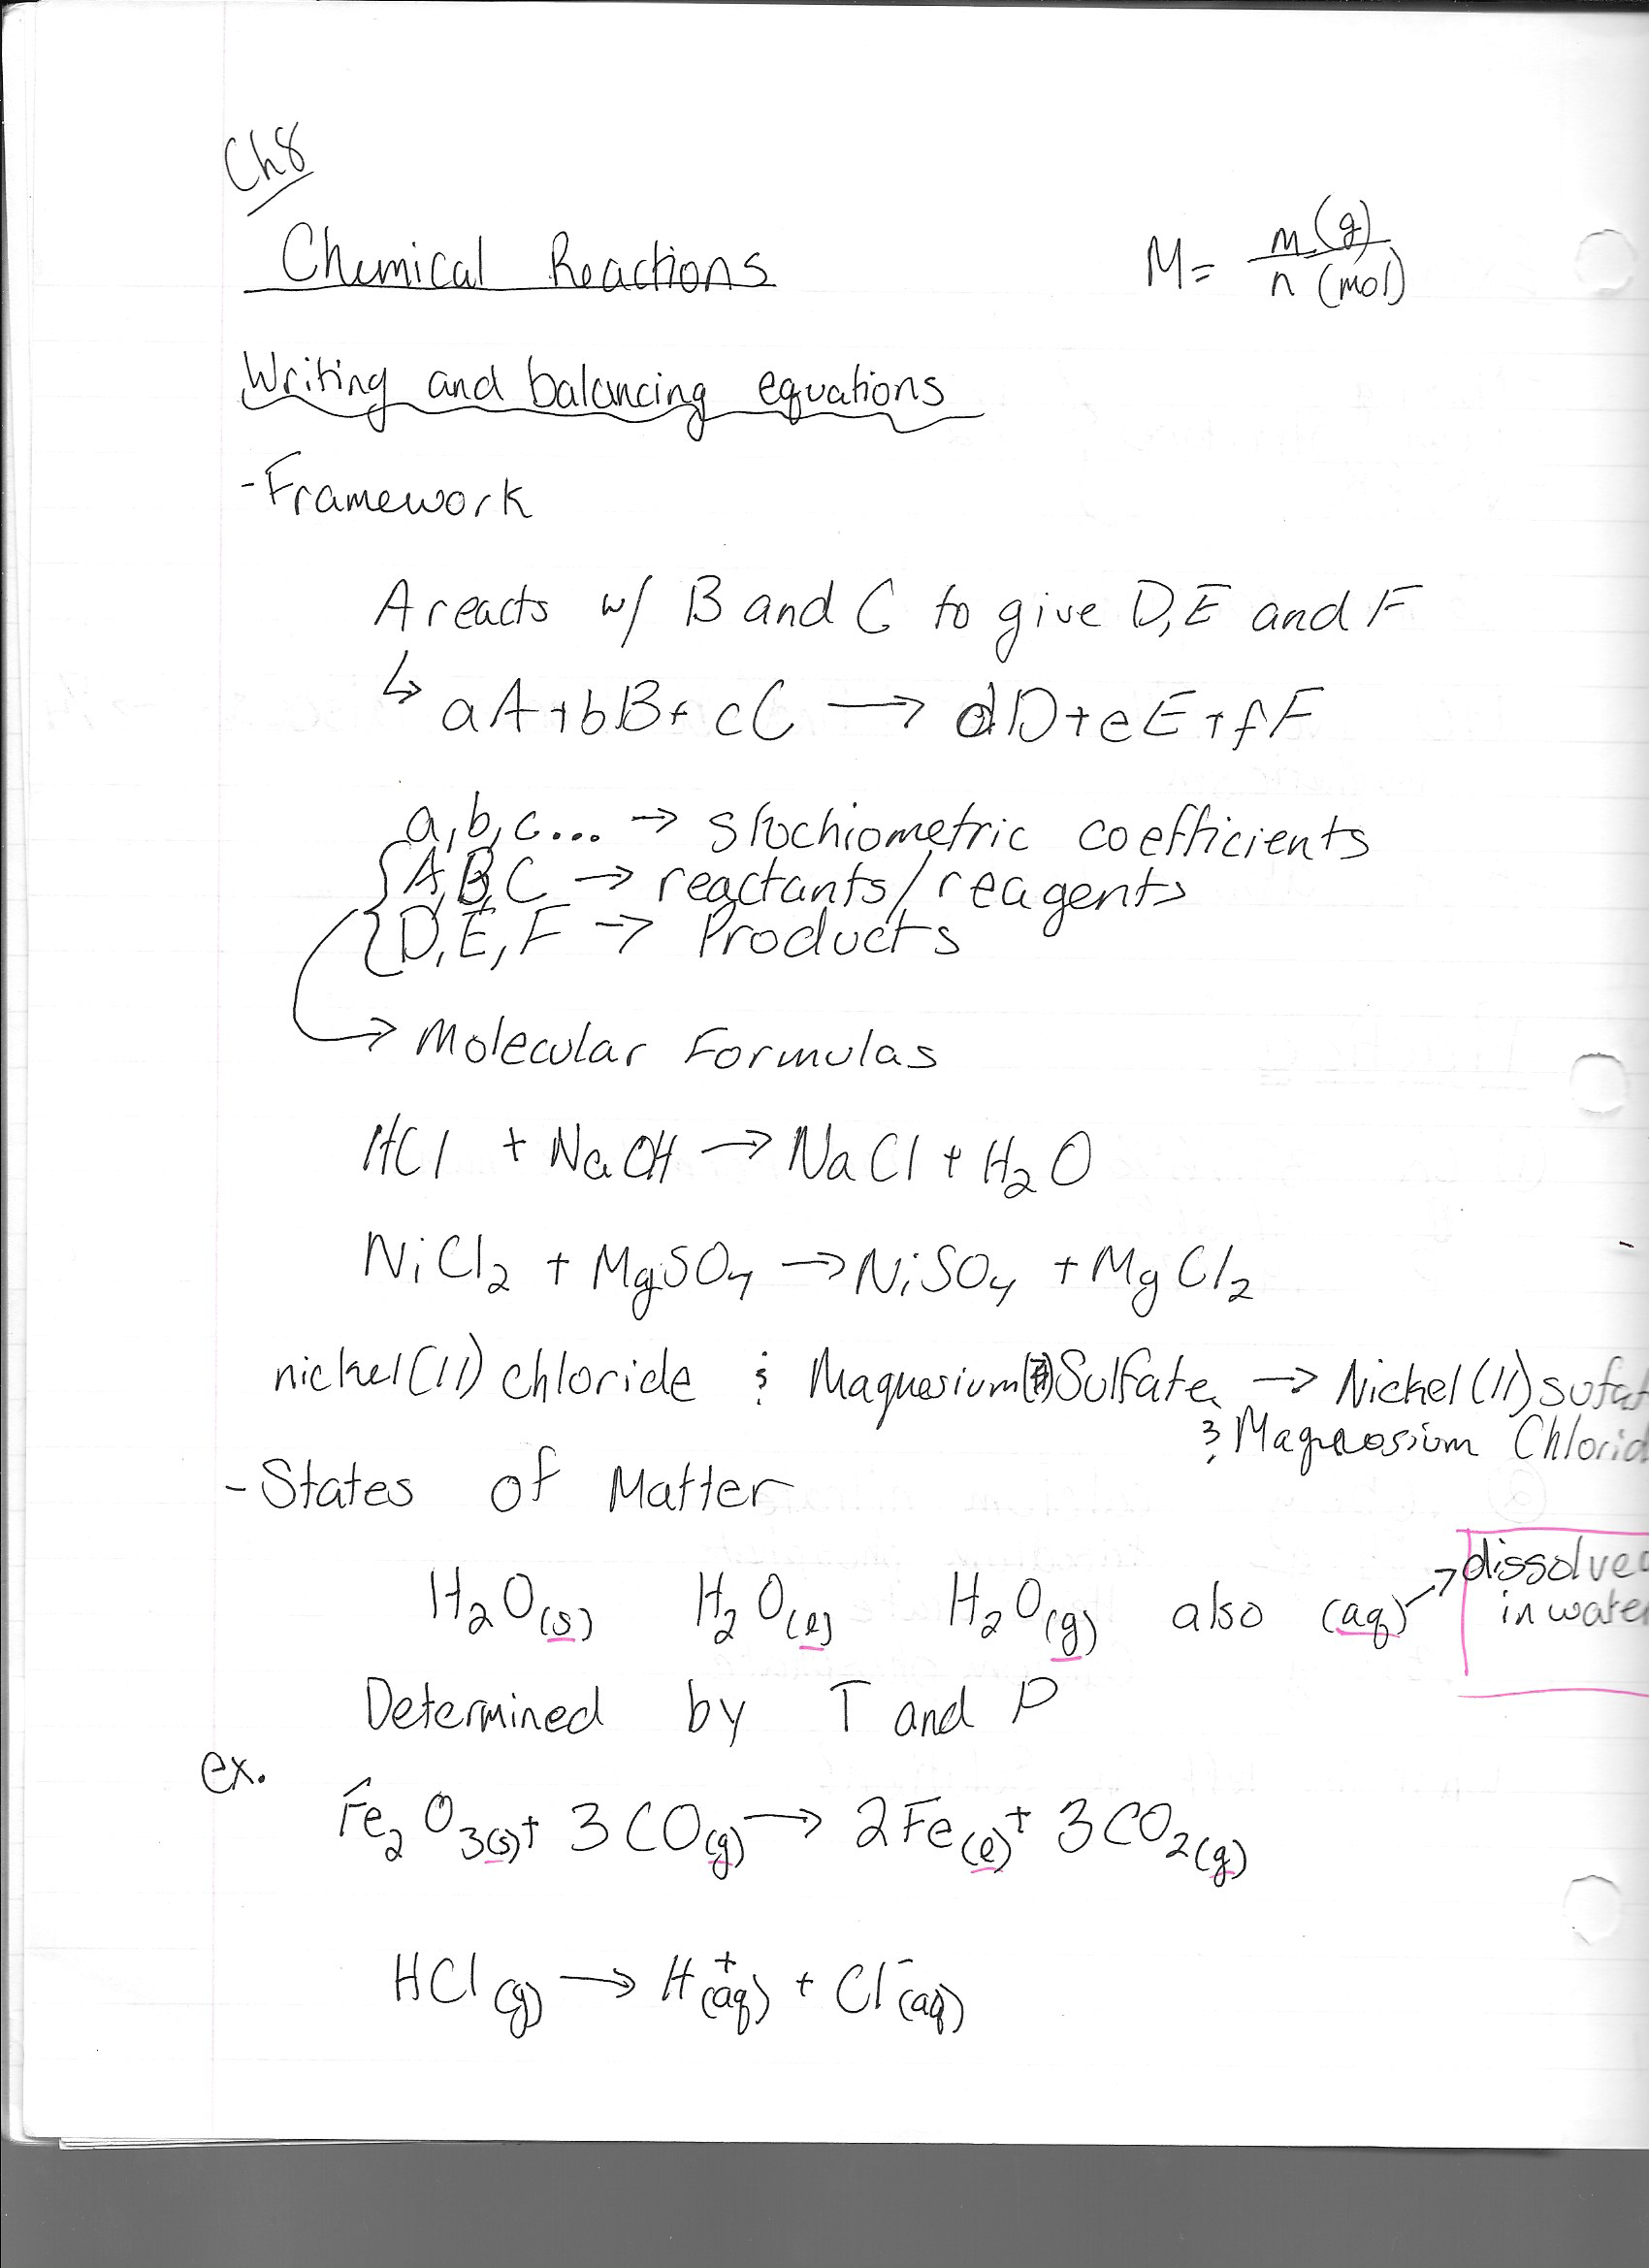 Ch8
Chemical Reactions
M = m(g) / n (mol)
Writing and balancing equations
- Framework
A reacts w/ B and C to give D, E and F
↳ aA + bB + cC → dD + eE + fF
a, b, c... → stochiometric coefficients
A, B, C → reactants/reagents
D, E, F → Products
→ Molecular Formulas
HCl + NaOH → NaCl + H₂O
NiCl₂ + MgSO₄ → NiSO₄ + MgCl₂
nickel(II) chloride & Magnesium Sulfate → Nickel(II) sufat
& Magnesium Chlorid
- States of Matter
H₂O(s) H₂O(l) H₂O(g) also (aq) → dissolved
in water
Determined by T and P
ex.
Fe₂O₃(s) + 3CO(g) → 2Fe(l) + 3CO₂(g)
HCl(g) → H⁺(aq) + Cl⁻(aq)